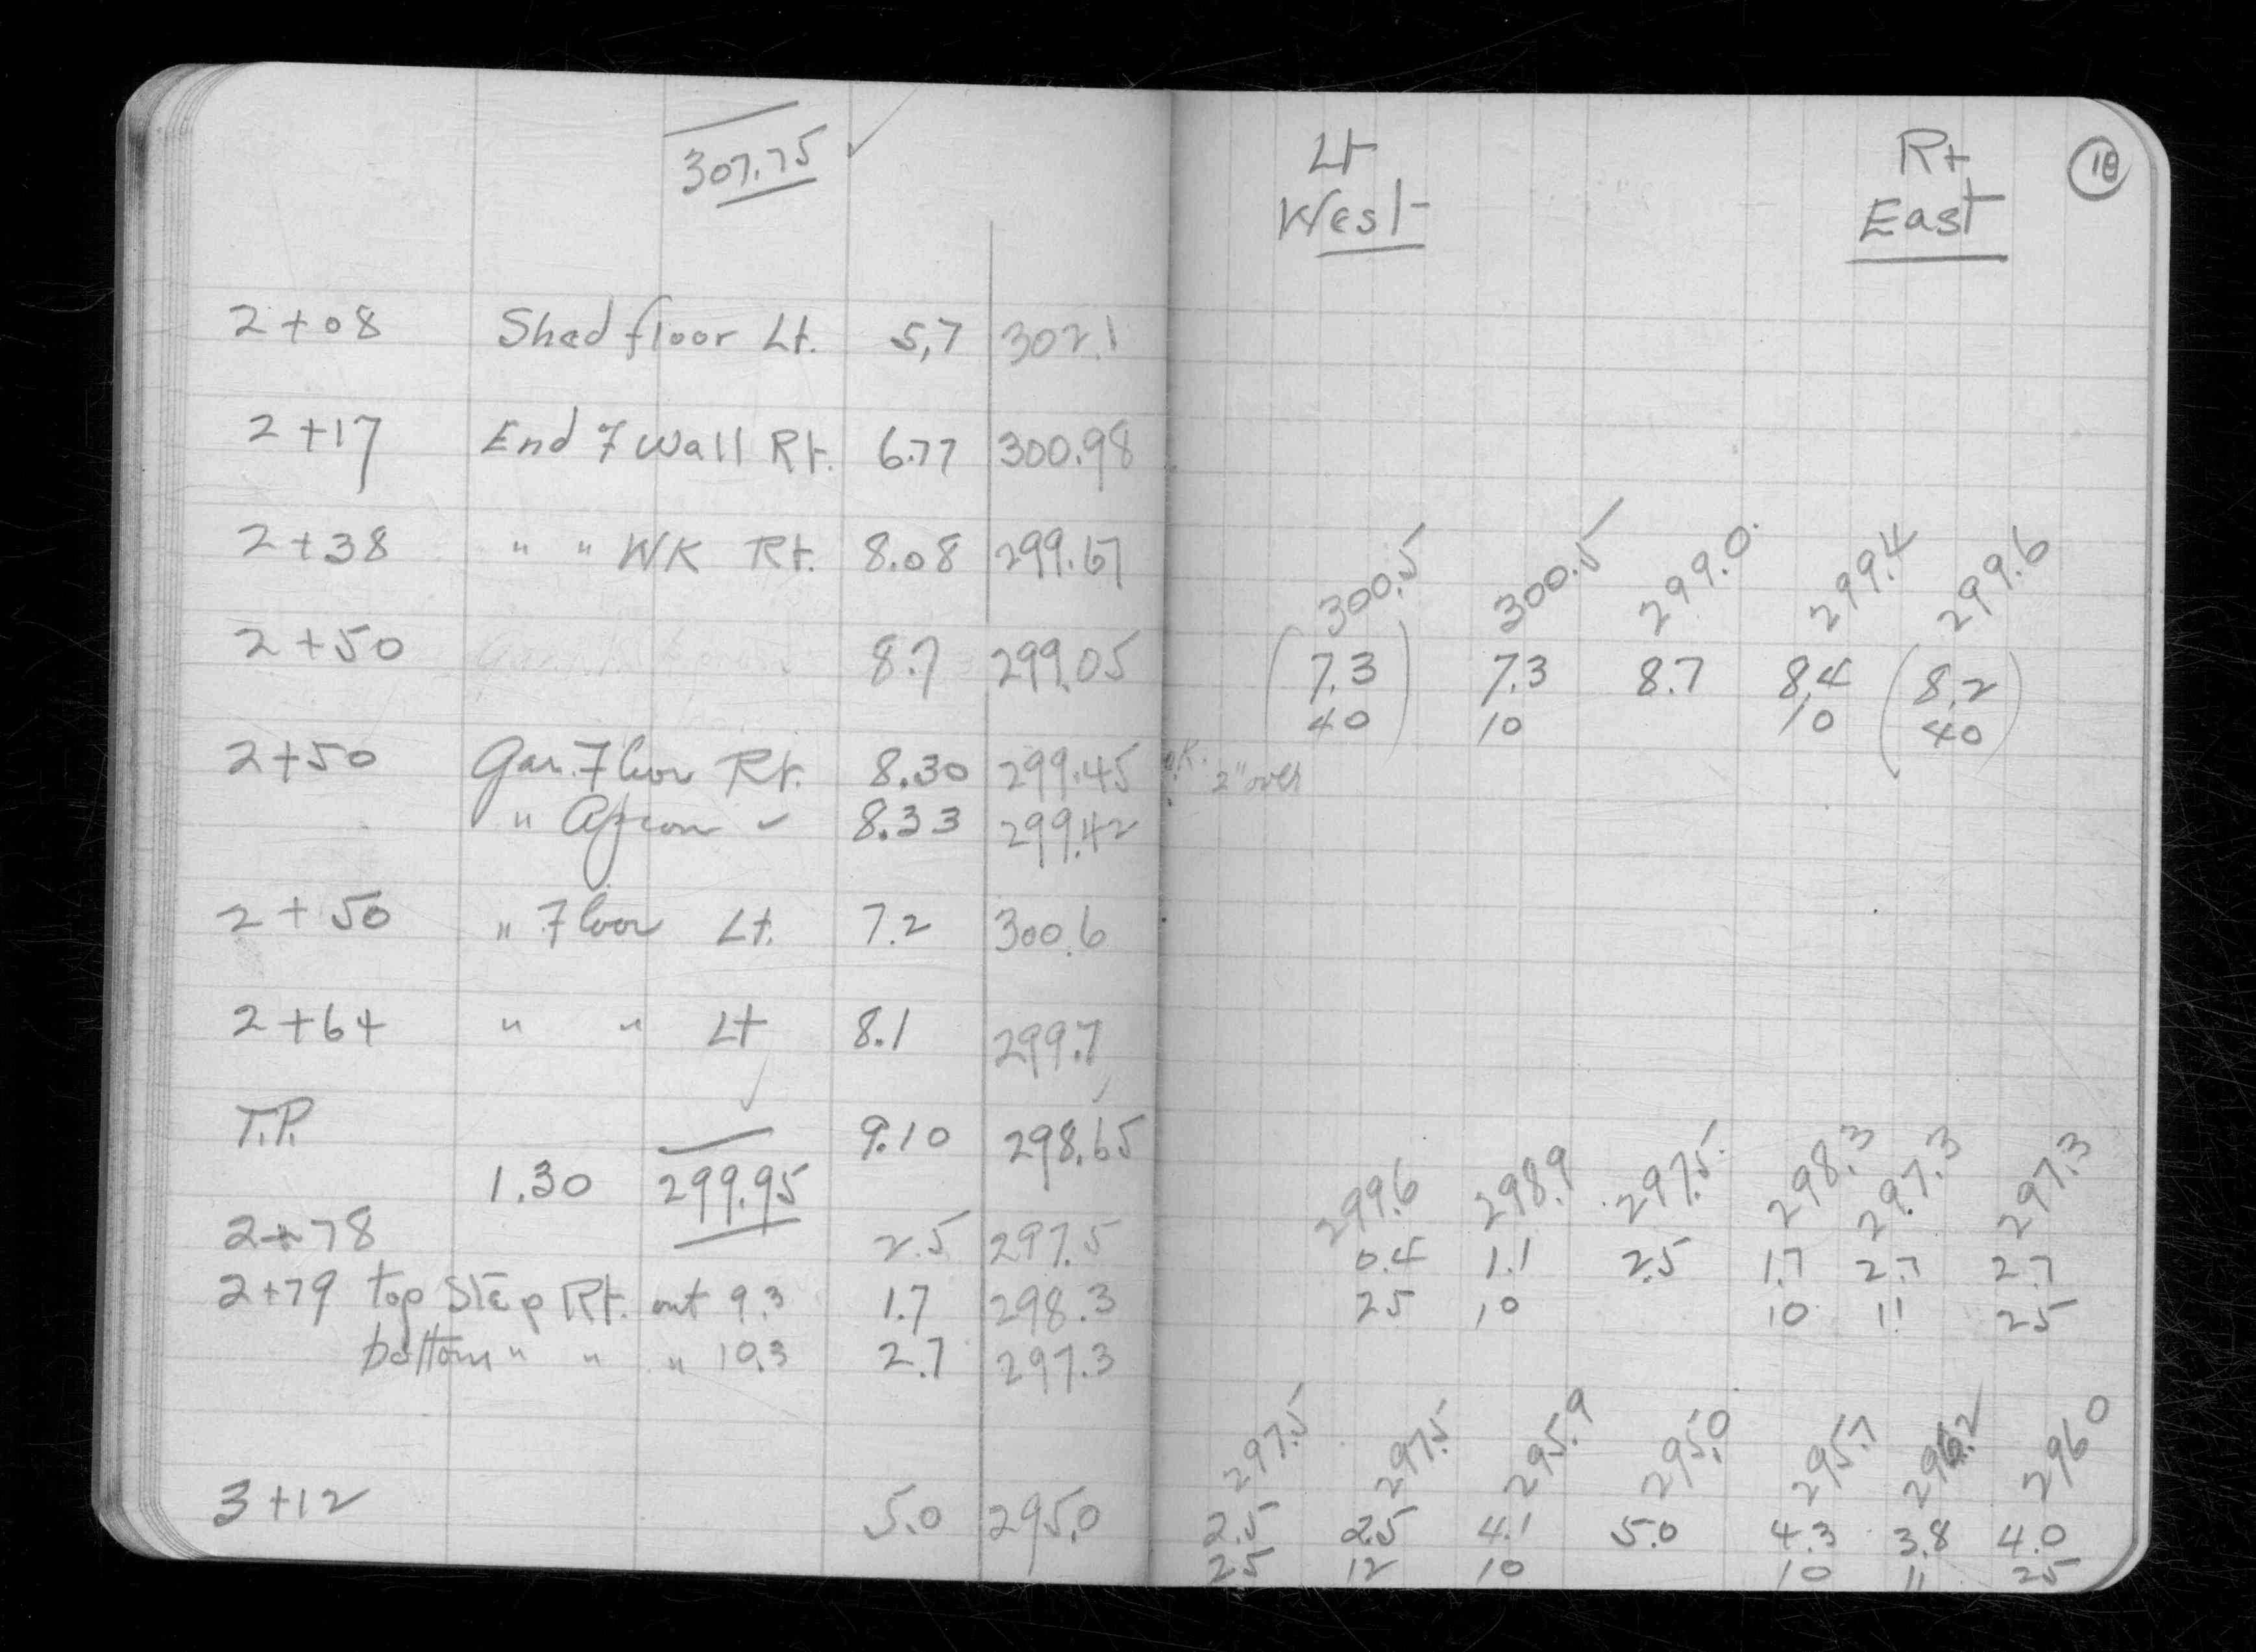 307.75 ✓
2+08 Shed floor Lt. 5.7 302.1
2+17 End of Wall Rt. 6.77 300.98
2+38 " " WK Rt. 8.08 299.67
2+50 8.7 299.05
2+50 Gar. Floor Rt. 8.30 299.45
" Apron " 8.33 299.42
2+50 " Floor Lt. 7.2 300.6
2+64 " " Lt 8.1 299.7
T.P. 9.10 298.65
1.30 299.95
2+78 2.5 297.5
2+79 top Step Rt. out 9.3 1.7 298.3
bottom " " " 10.3 2.7 297.3
3+12 5.0 295.0
Lt Rt 18
West East
300.5 300.5 299.0 299.4 299.6
(7.3 7.3 8.7 8.4 (8.2
40) 10 10 40)
O.K. 2" over
299.6 298.9 297.5 298.3 297.3 297.3
0.4 1.1 2.5 1.7 2.7 2.7
25 10 10 11 25
297.5 297.5 295.9 295.0 295.7 296.2 296.0
2.5 2.5 4.1 5.0 4.3 3.8 4.0
25 12 10 10 11 25